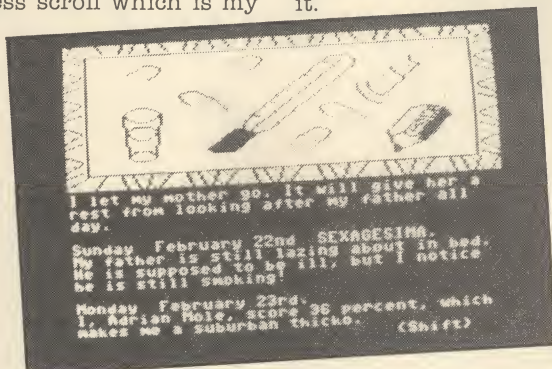 ess scroll which is my it.
I let my mother go. It will give her a
rest from looking after my father all
day.
Sunday February 22nd SEXAGESIMA.
My father is still lazing about in bed.
He is supposed to be ill, but I notice
he is still smoking!
Monday February 23rd.
I, Adrian Mole, score 36 percent, which
makes me a suburban thicko.
(Shift)